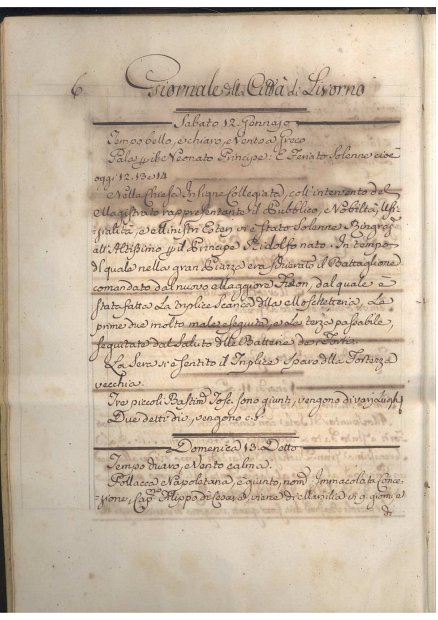 6.
Giornale della Città di Livorno
Sabato 12. Gennajo
Tempo bello, e chiaro, e Vento a Greco
Pala p il Neonato Principe: E Feriato Solenne cioè
oggi 12. 13. e 14
Nella Chiesa Insigne Collegiata, coll'intervento del
Magistrato rappresentante il Pubblico, e Nobiltà, Uffi-
zialità, e Ministri Esteri vi è stato Solenne Ringraz.
all'Altissimo p il Principe neonato. In tempo
del quale nella gran Piazza era squadrato il Battaglione
comandato dal nuovo Maggiore, dal quale è
stata fatta la triplice Scarica della Moschetteria, Le
prime due molto male eseguite, e la terza passabile,
seguitate dal Saluto delle Batterie de Forti.
La Sera si è sentito il Triplice sparo della Fortezza
vecchia.
Tre piccoli Bastim. Tosc. sono giunti, vengono di varj luoghi
Due detti di, vengono c. s.
Domenica 13. Detto
Tempo chiaro, e Vento calma.
Pollacca Napoletana, è giunto, nom. Immacolata Conce-
zione, Cap. Filippo di Cesare, viene di Marsilia in g. giorni, e
di